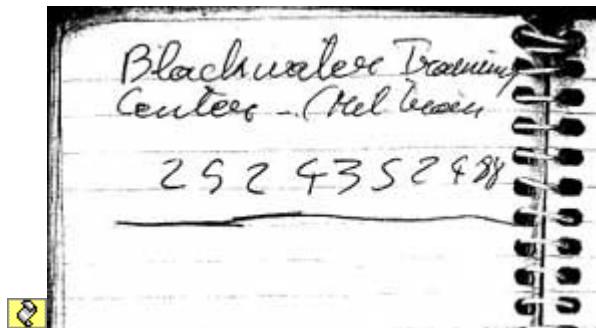 Blackwater Training
Center - (Mel
252 435 2488